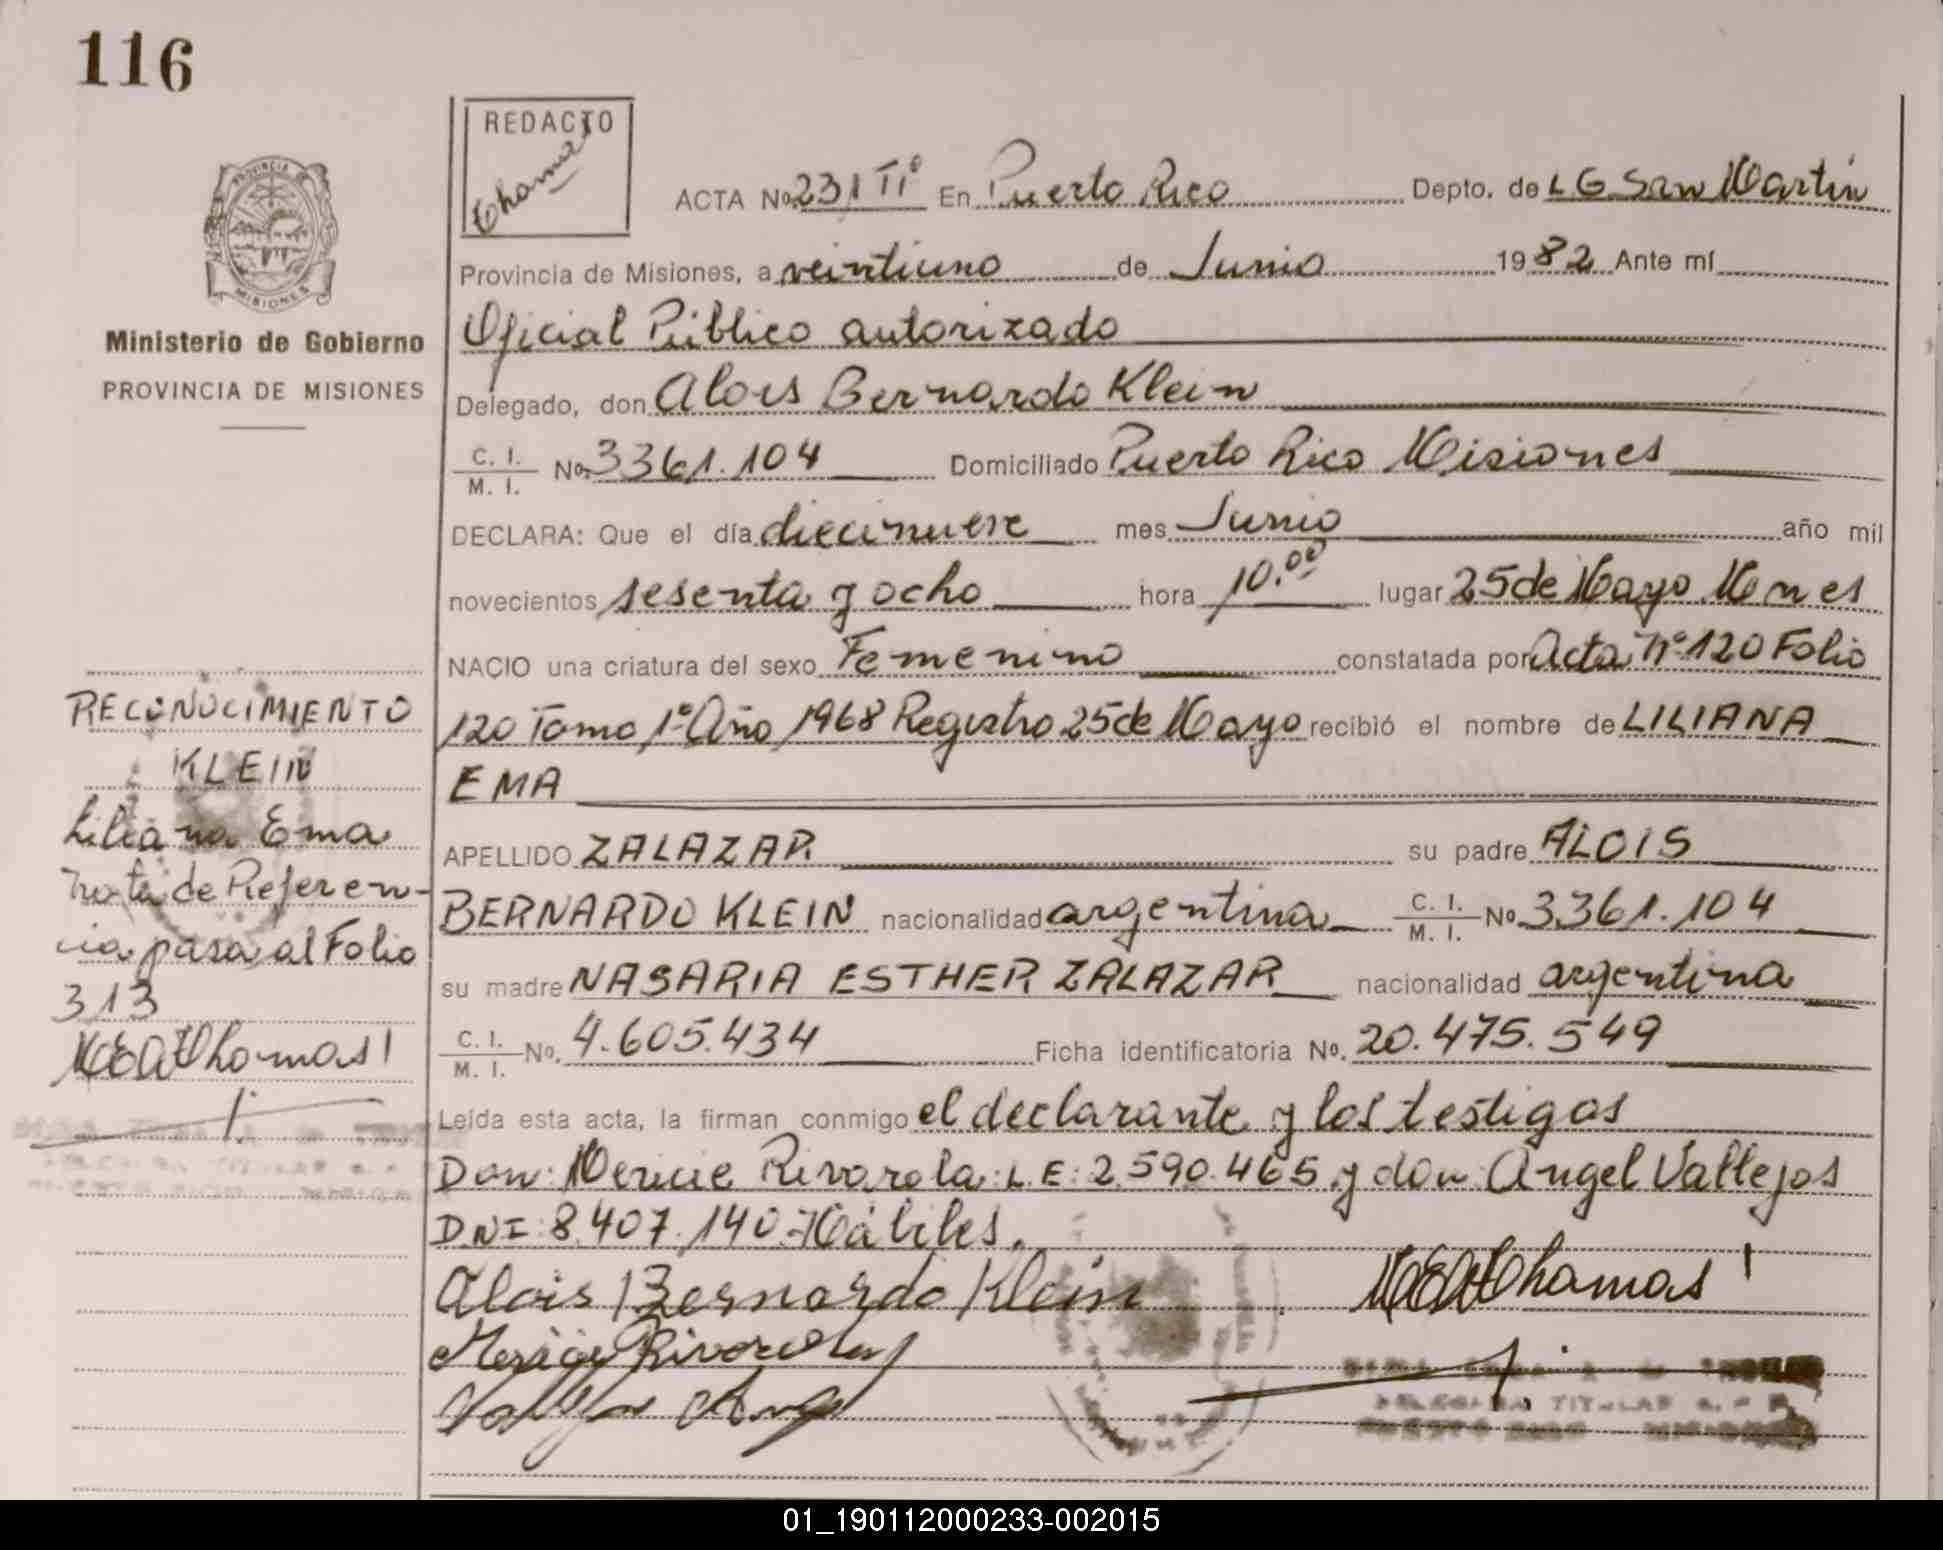 116
REDACTO
Thomas
ACTA No. 231 Tº IIº En Puerto Rico Depto. de L G San Martin
PROVINCIA DE
MISIONES
Provincia de Misiones, a veintiuno de Junio 1982 Ante mí
Ministerio de Gobierno
PROVINCIA DE MISIONES
Oficial Público autorizado
Delegado, don Alois Bernardo Klein
C. I. / M. I. No. 3361.104 Domiciliado Puerto Rico Misiones
DECLARA: Que el día diecinueve mes Junio año mil
novecientos sesenta y ocho hora 10.00 lugar 25 de Mayo Mnes
NACIO una criatura del sexo Femenino constatada por Acta nº 120 Folio
120 Tomo 1º Año 1968 Registro 25 de Mayo recibió el nombre de LILIANA
EMA
APELLIDO ZALAZAR su padre ALOIS
BERNARDO KLEIN nacionalidad argentina C. I. / M. I. No 3361.104
su madre NASARIA ESTHER ZALAZAR nacionalidad argentina
C. I. / M. I. No. 4.605.434 Ficha identificatoria No. 20.475.549
Leída esta acta, la firman conmigo el declarante y los testigos
Don: Mericie Rivarola: L E: 2.590.465 y don: Angel Vallejos
DNI: 8.407.140.-Hábiles.
Alois Bernardo Klein
Rivarola
RECONOCIMIENTO
KLEIN
Liliana Ema
Nota de Referen-
cia pasa al Folio
313
Thomas
Thomas
DELEGADA TITULAR
PUERTO RICO MISIONES
01_190112000233-002015